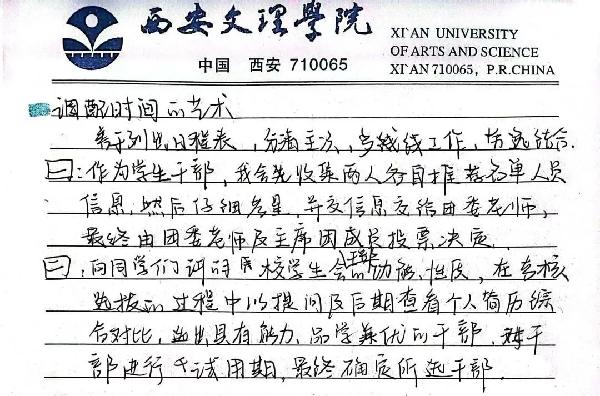 西安文理學院
XI'AN UNIVERSITY
OF ARTS AND SCIENCE
中国 西安 710065
XI'AN 710065, P.R.CHINA
调配时间的艺术
列出日程表，分清主次，多线线工作，劳逸结合.
一：作为学生干部，我会先收集两人各自推荐名单人员
信息，然后仔细考量，并交信息交给团委老师，
最终由团委老师及主席团成员投票决定.
二，向同学们讲明校学生会干部的功能、性质，在考核
选拔的过程中以提问及后期查看个人简历综
合对比，选出具有能力、品学兼优的干部，对干
部进行试用期，最终确定所选干部.